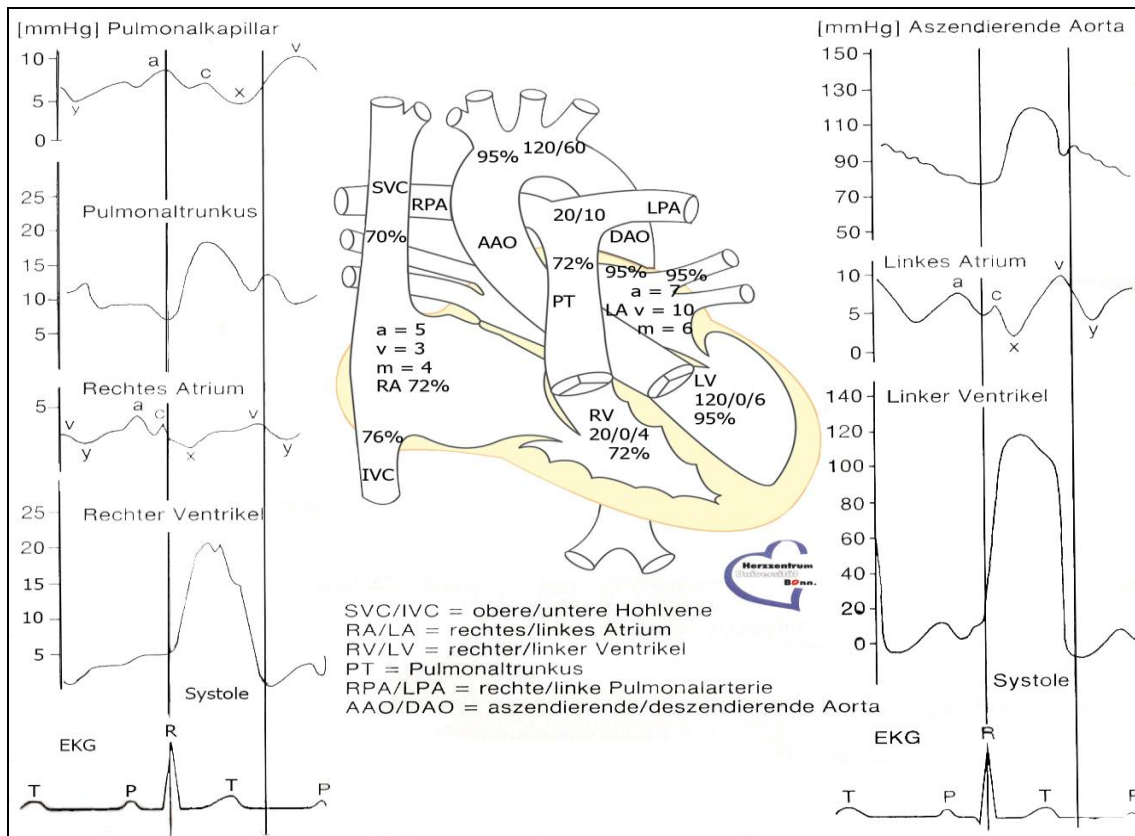 [mmHg] Pulmonalkapillar
10
5
0
a
c
v
y
x
25
20
15
10
5
Pulmonaltrunkus
5
Rechtes Atrium
v
y
a
c
x
v
y
25
20
15
5
Rechter Ventrikel
Systole
EKG
R
T
P
T
P
SVC
70%
RPA
95%
120/60
AAO
20/10
LPA
DAO
72%
PT
95%
95%
a = 7
LA v = 10
m = 6
a = 5
v = 3
m = 4
RA 72%
76%
IVC
RV
20/0/4
72%
LV
120/0/6
95%
Herzzentrum
Universität
Bonn.
SVC/IVC = obere/untere Hohlvene
RA/LA = rechtes/linkes Atrium
RV/LV = rechter/linker Ventrikel
PT = Pulmonaltrunkus
RPA/LPA = rechte/linke Pulmonalarterie
AAO/DAO = aszendierende/deszendierende Aorta
[mmHg] Aszendierende Aorta
150
130
110
90
70
50
Linkes Atrium
10
5
0
a
c
v
x
y
Linker Ventrikel
140
120
100
80
60
40
20
0
Systole
EKG
R
T
P
T
P